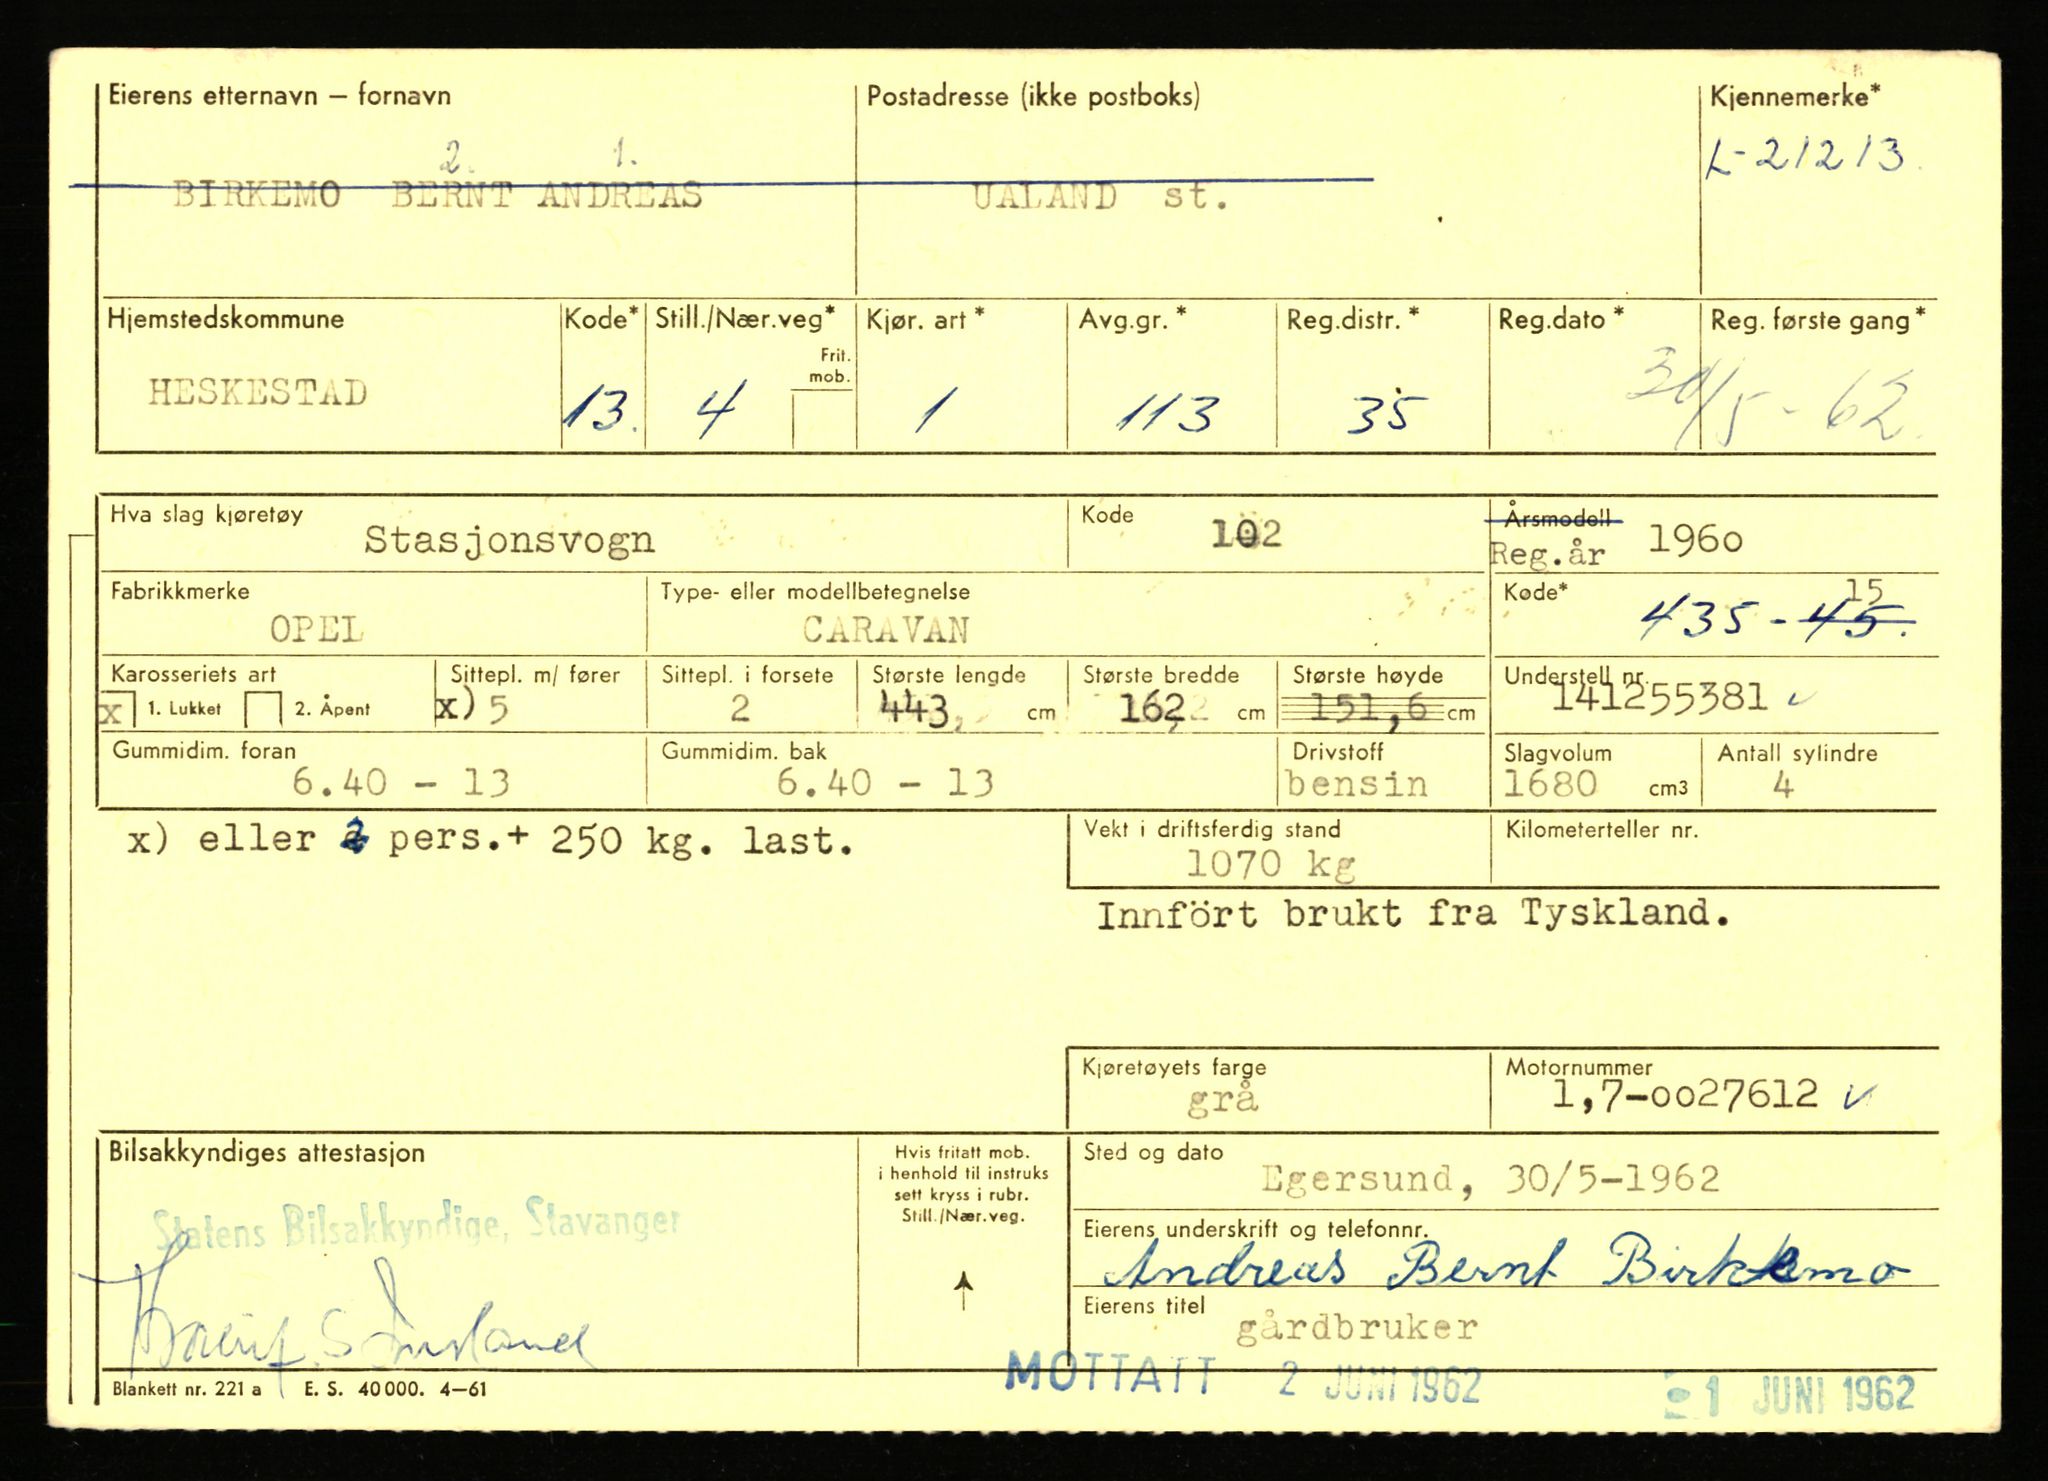 Eierens etternavn – fornavn
Postadresse (ikke postboks)
Kjennemerke*
2. 1.
BIRKEMO BERNT ANDREAS
UALAND st.
L-21213.
Hjemstedskommune
Kode*
Still./Nær.veg*
Frit. mob.
Kjør. art *
Avg.gr. *
Reg.distr. *
Reg.dato *
Reg. første gang *
HESKESTAD
13.
4
1
113
35
30/5-62.
Hva slag kjøretøy
Stasjonsvogn
Kode
102
Årsmodell
Reg.år 1960
Fabrikkmerke
OPEL
Type- eller modellbetegnelse
CARAVAN
Kode*
15
435-45.
Karosseriets art
x 1. Lukket 2. Åpent
Sittepl. m/ fører
x) 5
Sittepl. i forsete
2
Største lengde
443, cm
Største bredde
162 cm
Største høyde
151,6 cm
Understell nr.
141255381 ✓
Gummidim. foran
6.40 - 13
Gummidim. bak
6.40 - 13
Drivstoff
bensin
Slagvolum
1680 cm3
Antall sylindre
4
x) eller 2 pers.+ 250 kg. last.
Vekt i driftsferdig stand
1070 kg
Kilometerteller nr.
Innfört brukt fra Tyskland.
Kjøretøyets farge
grå
Motornummer
1,7-0027612 ✓
Bilsakkyndiges attestasjon
Statens Bilsakkyndige, Stavanger
Hvis fritatt mob.
i henhold til instruks
sett kryss i rubr.
Still./Nær.veg.
Sted og dato
Egersund, 30/5-1962
Eierens underskrift og telefonnr.
Andreas Bernt Birkemo
Eierens titel
gårdbruker
MOTTATT 2 JUNI 1962
1 JUNI 1962
Blankett nr. 221 a E. S. 40000. 4–61